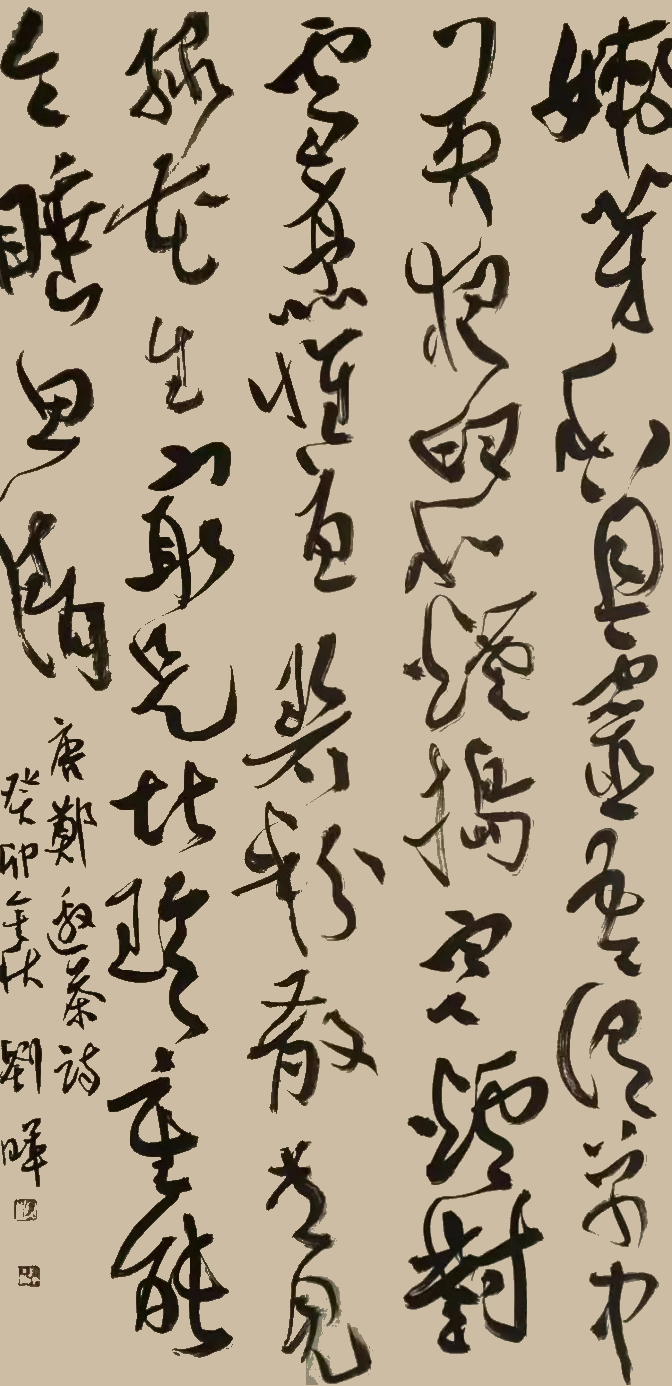 嫩芽香且靈吾謂草中
英夜臼和煙搗寒爐對
雪烹惟憂碧粉散嘗見
綠花生最是堪珍重能
令睡思清
唐鄭遨茶詩
癸卯金秋劉暉